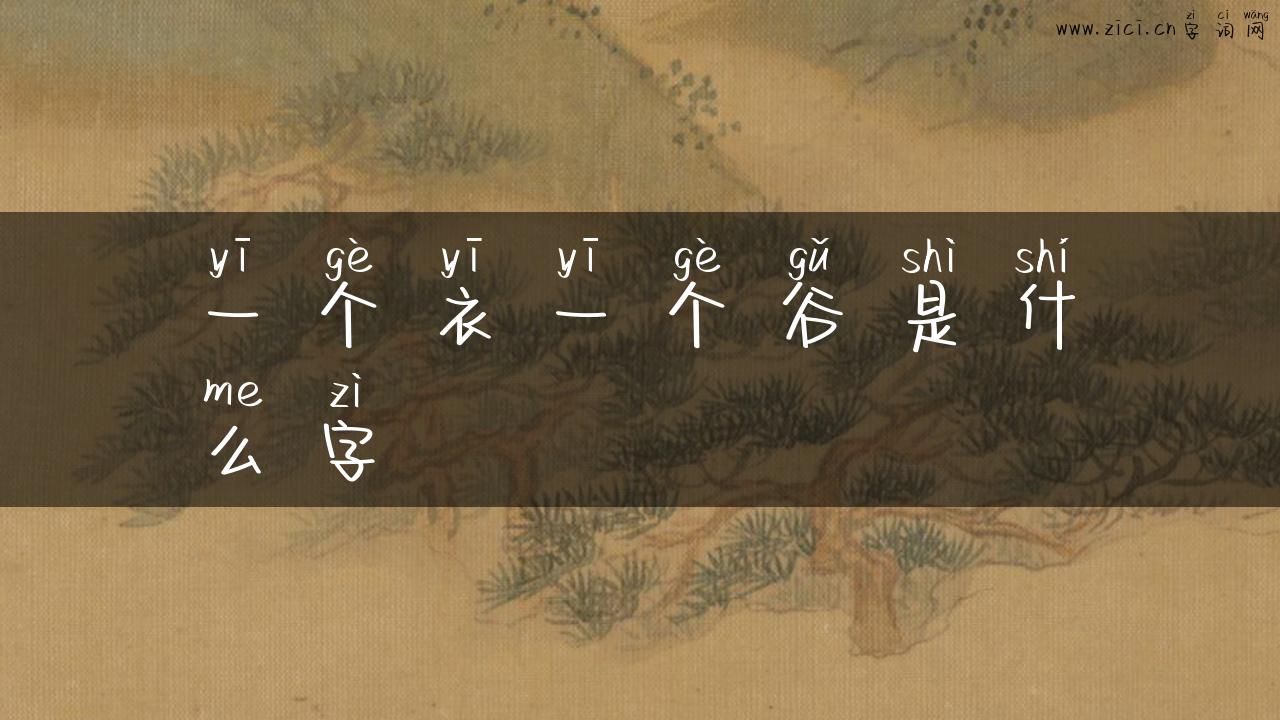 www.zici.cn 字词网
zì cí wǎng
yī gè yī yī gè gǔ shì shí
一个衣一个谷是什
me zì
么字